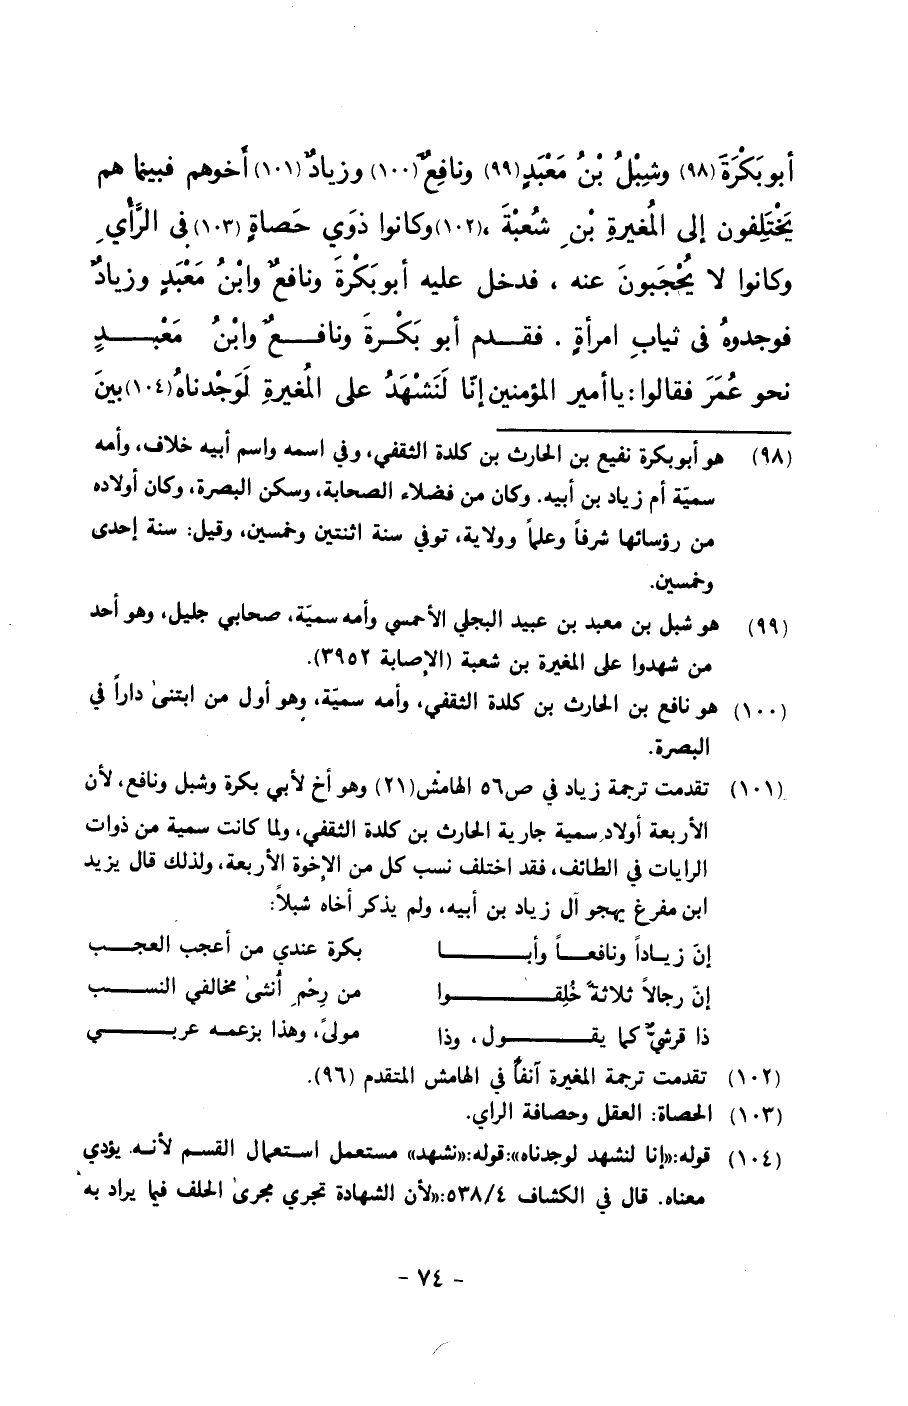 أبو بَكْرَةَ (٩٨) وشِبْلُ بْنُ مَعْبَدٍ (٩٩) ونافِعٌ (١٠٠) وزيادٌ (١٠١) أَخوهم فبينما هم
يَخْتَلِفون إلى المُغيرةِ بْنِ شُعبْةَ ،(١٠٢) وكانوا ذَوَي حَصاةٍ (١٠٣) فى الرَّأيِ
وكانوا لا يُحْجَبونَ عنه ، فدخل عليه أبو بَكْرةَ ونافعٌ وابْنُ مَعْبَدٍ وزيادٌ
فوجدوهُ فى ثيابِ امرأةٍ . فقـدم أبو بَكْـرةَ ونافـعٌ وابْنُ مَعْبـدٍ
نحو عُمَرَ فقالوا: ياأمير المؤمنين إنّا لَنَشْهَدُ على المُغيرةِ لَوَجْدناهُ (١٠٤) بينَ
(٩٨) هو أبو بكرة نفيع بن الحارث بن كلدة الثقفي، وفي اسمه واسم أبيه خلاف، وأمه
سميّة أم زياد بن أبيه. وكان من فضلاء الصحابة، وسكن البصرة، وكان أولاده
من رؤسائها شرفاً وعلماً وولاية، توفي سنة اثنتين وخمسين، وقيل: سنة إحدى
وخمسين.
(٩٩) هو شبل بن معبد بن عبيد البجلي الأحمسي وأمه سميّة، صحابي جليل، وهو أحد
من شهدوا على المغيرة بن شعبة (الإصابة ٣٩٥٢).
(١٠٠) هو نافع بن الحارث بن كلدة الثقفي، وأمه سميّة، وهو أول من ابتنىٰ داراً في
البصرة.
(١٠١) تقدمت ترجمة زياد في ص٥٦ الهامش (٢١) وهو أخ لأبي بكرة وشبل ونافع، لأن
الأربعة أولاد سمية جارية الحارث بن كلدة الثقفي، ولما كانت سمية من ذوات
الرايات في الطائف، فقد اختلف نسب كل من الإخوة الأربعة، ولذلك قال يزيد
ابن مفرغ يهجو آل زياد بن أبيه، ولم يذكر أخاه شبلاً:
إنّ زيـاداً ونافعـاً وأبـا بكرة عندي من أعجب العجـب
إنّ رجالاً ثلاثةً خُلِقـوا من رِحْمِ أُنثىٰ مخالفي النسـب
ذا قرشيٌّ كما يقـول، وذا مولىً، وهذا بزعمه عربـي
(١٠٢) تقدمت ترجمة المغيرة آنفاً في الهامش المتقدم (٩٦).
(١٠٣) الحصاة: العقل وحصافة الراي.
(١٠٤) قوله:«إنا لنشهد لوجدناه»:قوله:«نشهد» مستعمل استعمال القسم لأنـه يؤدي
معناه. قال في الكشاف ٥٣٨/٤:«لأن الشهادة تجري مجرىٰ الحلف فيما يراد به
- ٧٤ -